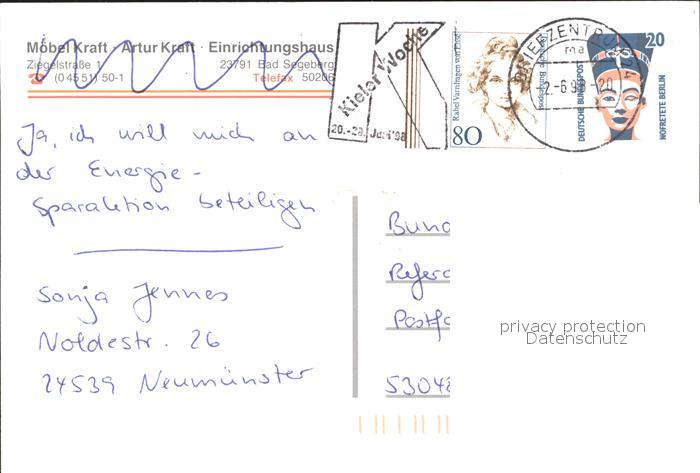 Möbel Kraft · Artur Kraft · Einrichtungshaus
Ziegelstraße 1 23791 Bad Segeberg
(0 45 51) 50-1 Telefax 50206
Kieler Woche
20.-28. Juni '98
Rahel Varnhagen von Ense
80
BRIEFZENTRUM 24
ma
20
DEUTSCHE BUNDESPOST
NOFRETETE BERLIN
Ja, ich will mich an
der Energie-
Sparaktion beteiligen
Sonja Jennes
Noldestr. 26
24539 Neumünster
Bund
Refera
Postfa
53048
privacy protection
Datenschutz